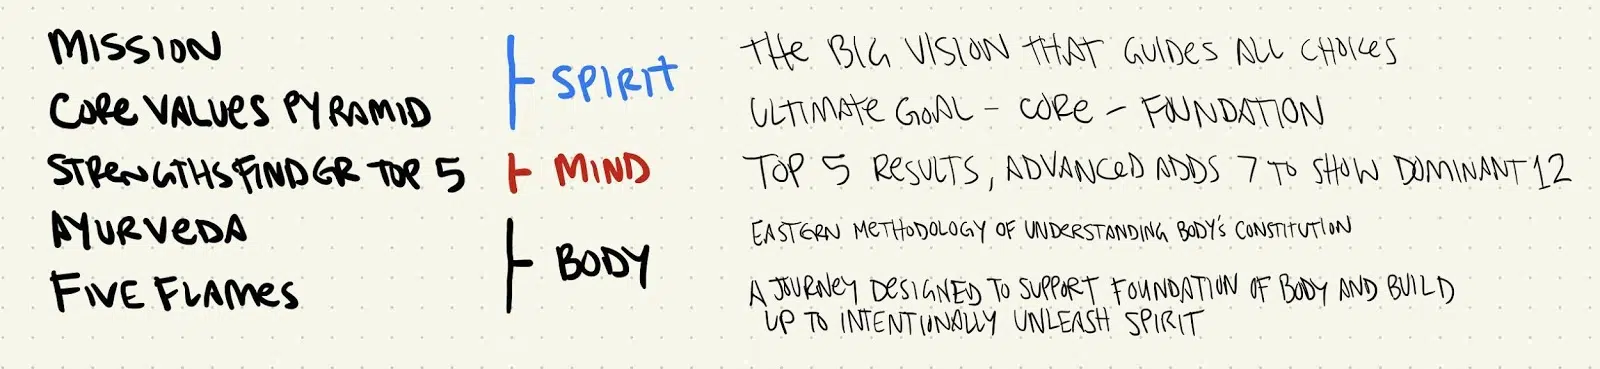 MISSION
CORE VALUES PYRAMID
STRENGTHSFINDER TOP 5
AYURVEDA
FIVE FLAMES
SPIRIT
MIND
BODY
THE BIG VISION THAT GUIDES ALL CHOICES
ULTIMATE GOAL - CORE - FOUNDATION
TOP 5 RESULTS, ADVANCED ADDS 7 TO SHOW DOMINANT 12
EASTERN METHODOLOGY OF UNDERSTANDING BODY'S CONSTITUTION
A JOURNEY DESIGNED TO SUPPORT FOUNDATION OF BODY AND BUILD
UP TO INTENTIONALLY UNLEASH SPIRIT